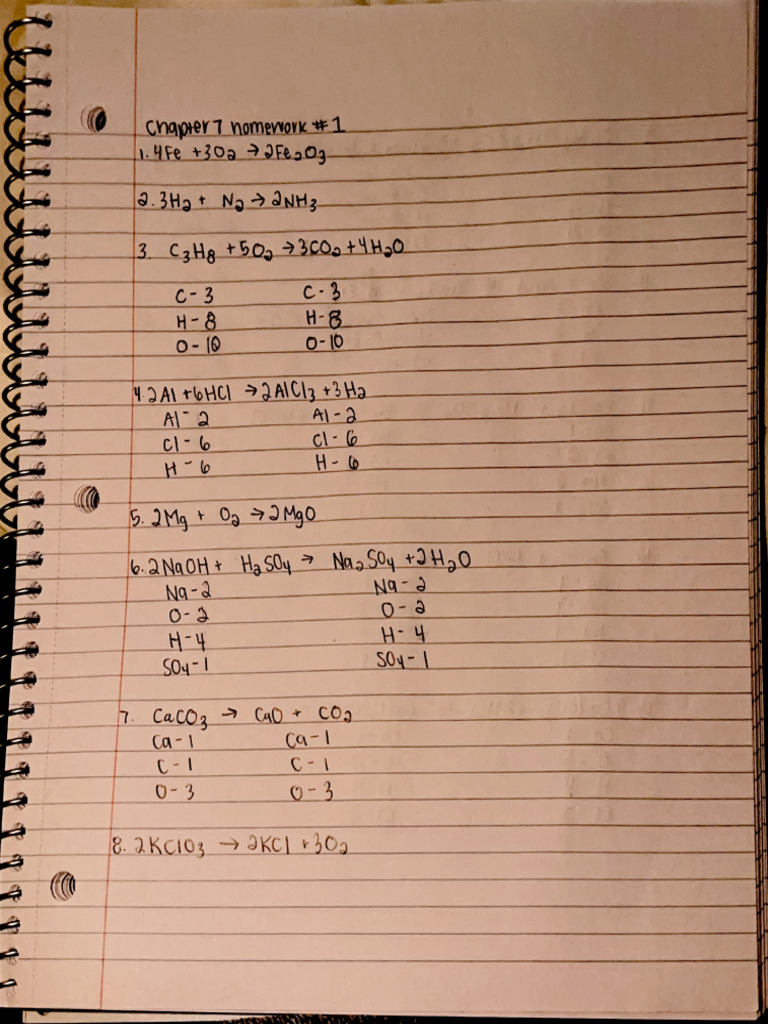 Chapter 7 homework #1
1. 4Fe + 3O₂ → 2Fe₂O₃
2. 3H₂ + N₂ → 2NH₃
3. C₃H₈ + 5O₂ → 3CO₂ + 4H₂O
C - 3 C - 3
H - 8 H - 8
O - 10 O - 10
4. 2Al + 6HCl → 2AlCl₃ + 3H₂
Al - 2 Al - 2
Cl - 6 Cl - 6
H - 6 H - 6
5. 2Mg + O₂ → 2MgO
6. 2NaOH + H₂SO₄ → Na₂SO₄ + 2H₂O
Na - 2 Na - 2
O - 2 O - 2
H - 4 H - 4
SO₄ - 1 SO₄ - 1
7. CaCO₃ → CaO + CO₂
Ca - 1 Ca - 1
C - 1 C - 1
O - 3 O - 3
8. 2KClO₃ → 2KCl + 3O₂